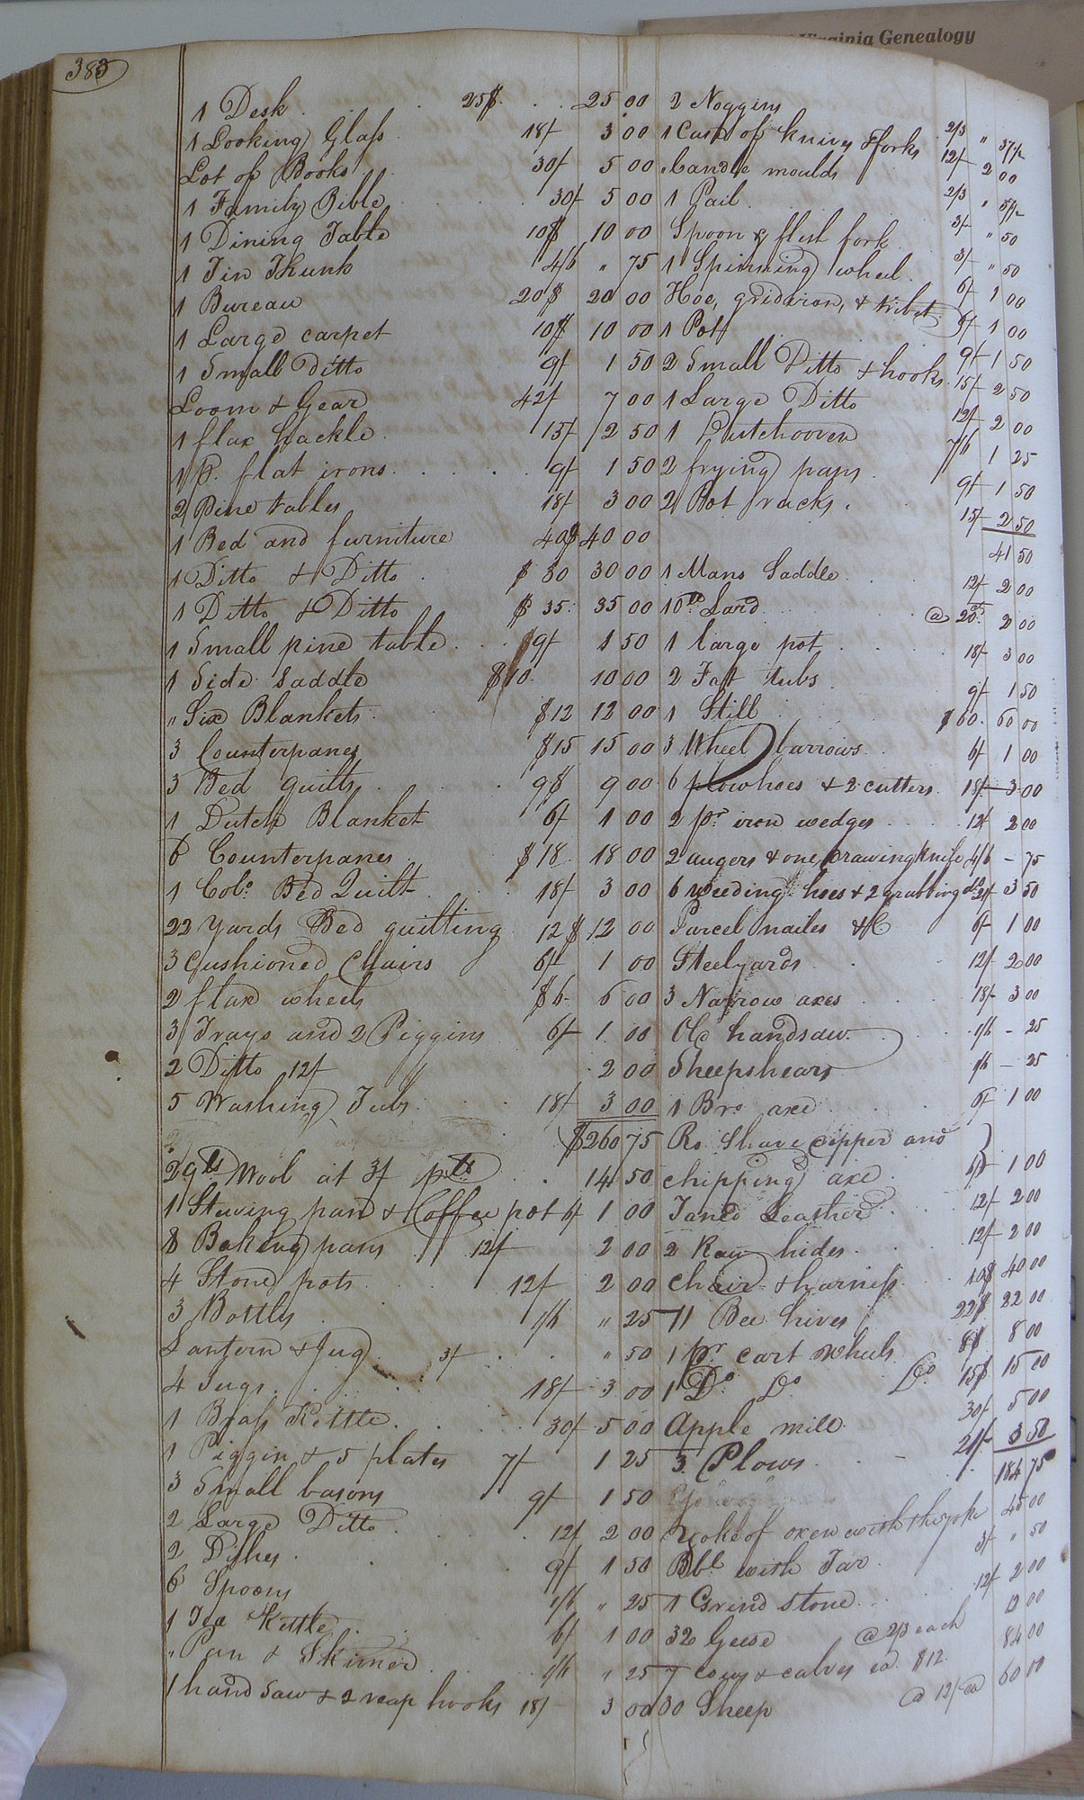 Virginia Genealogy
383
1 Desk 25$ 25 00
1 Looking Glass 18/ 3 00
Lot of Books 30/ 5 00
1 Family Bible 30/ 5 00
1 Dining Table 10$ 10 00
1 Tin Trunk 4/6 " 75
1 Bureau 20$ 20 00
1 Large carpet 10$ 10 00
1 Small Ditto 9/ 1 50
Loom & Gear 42/ 7 00
1 flax hackle 15/ 2 50
1 p. flat irons 9/ 1 50
2 Pine tables 18/ 3 00
1 Bed and furniture 40$ 40 00
1 Ditto & Ditto $ 30 30 00
1 Ditto & Ditto $ 35 35 00
1 Small pine table 9/ 1 50
1 Side Saddle $10 10 00
" Six Blankets $12 12 00
3 Counterpanes $15 15 00
3 Bed quilts 9$ 9 00
1 Dutch Blanket 6/ 1 00
6 Counterpanes $18 18 00
1 Colo. Bed Quilt 18/ 3 00
22 yards Bed quilting 12$ 12 00
3 Cushioned Chairs 6/ 1 00
2 flax wheels $6 6 00
3 Trays and 2 Piggins 6/ 1 00
2 Ditto 12/ 2 00
5 Washing Tubs 18/ 3 00
$260 75
29 lbs Wool at 3/ 14 50
1 Stewing pan & Coffee pot 6/ 1 00
8 Baking pans 12/ 2 00
4 Stone pots 12/ 2 00
3 Bottles 1/6 " 25
Lantern & Jug 3/ " 50
4 Jugs 18/ 3 00
1 Brass Kettle 30/ 5 00
1 Piggin & 5 plates 7/ 1 25
3 Small basons 9/ 1 50
2 Large Ditto 12/ 2 00
2 Dishes 9/ 1 50
6 Spoons 1/6 " 25
1 Tea Kettle 6/ 1 00
" Pan & Skimer 1/6 " 25
1 hand Saw & 2 reap hooks 18/ 3 00
2 Noggins 2/3 " 37½
1 Case of knives & forks 12/ 2 00
Candle moulds 2/3
1 Pail 3/ " 50
Spoon & flesh fork 3/ " 50
1 Spinning wheel 6/ 1 00
Hoe, gridiron, & trivet 6/ 1 00
1 Pott 9/ 1 50
2 Small Ditto & hooks 15/ 2 50
1 Large Ditto 12/ 2 00
1 Dutchooven 7/6 1 25
2 frying pans 9/ 1 50
2 Pot racks 15/ 2 50
41 50
1 Mans Saddle 12/ 2 00
10 lb Lard @ 20 cts 2 00
1 large pot 18/ 3 00
2 Fatt tubs 9/ 1 50
1 Still $60 60 00
3 Wheel barrows 6/ 1 00
6 plowhoes & 2 cutters 18/ 3 00
2 pr iron wedges 12/ 2 00
2 augers & one Drawing knife 4/6 - 75
6 weeding hoes & 2 grubbing do 21/ 3 50
Parcel nailes &C 6/ 1 00
Steelyards 12/ 2 00
3 Narrow axes 18/ 3 00
Old handsaw 1/6 - 25
Sheepshears 1/6 - 25
1 Bro axe 6/ 1 00
Ro Shave cipper and
chipping axe 6/ 1 00
Taned Leather 12/ 2 00
2 Raw hides 12/ 2 00
Chair & harness 40 00
11 Bee hives 22$ 22 00
1 pr cart wheels 8$ 8 00
1 Do Do Do 15$ 15 00
Apple mill 30/ 5 00
3 Plows 21/ 3 50
184 75
Yoke of oxen with the yoke 45 00
Bbl with Tar 3/ " 50
1 Grind stone 12/ 2 00
32 Geese @ 2/3 each 12 00
7 cows & calves ea $12 84 00
30 Sheep @ 12/ ea 60 00